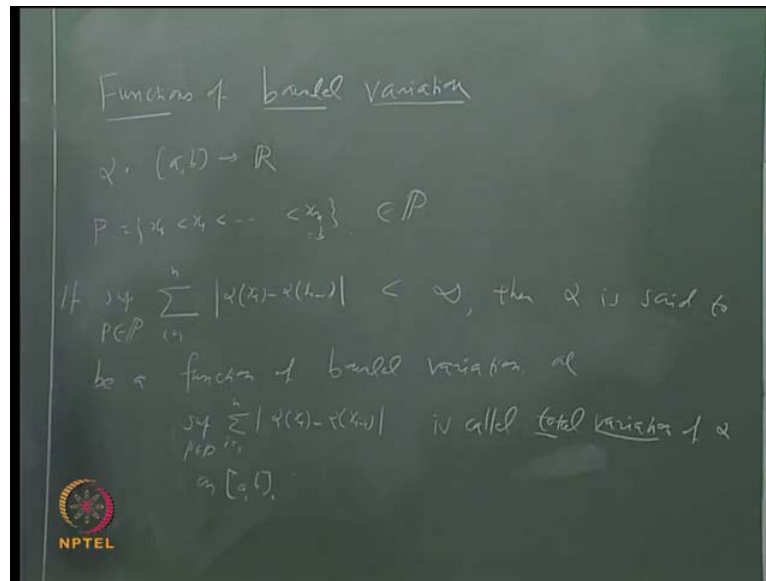 Functions of bounded variation
α : [a,b) → ℝ
P = {x₀ < x₁ < ... < xₙ = b} ∈ ℙ
If sup_{P∈ℙ} ∑_{i=1}^{n} |α(xᵢ) - α(xᵢ₋₁)| < ∞, then α is said to
be a function of bounded variation and
sup_{P∈ℙ} ∑_{i=1}^{n} |α(xᵢ) - α(xᵢ₋₁)| is called total variation of α
on [a,b].
NPTEL